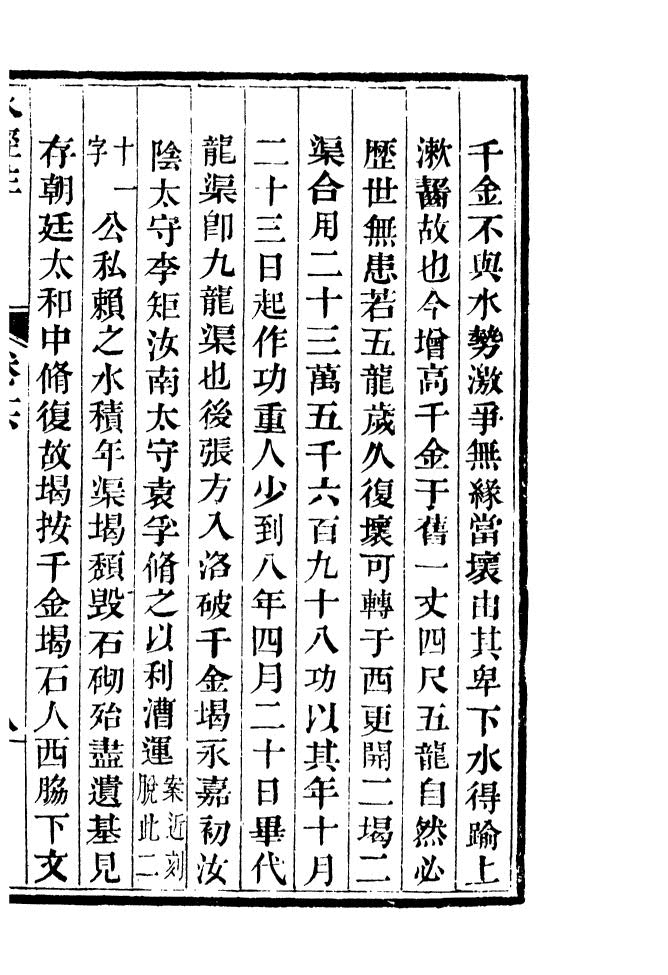 千金不與水勢激爭無緣當壞由其卑下水得踰上
漱齧故也今增高千金于舊一丈四尺五龍自然必
歷世無患若五龍歲久復壞可轉于西更開二堨二
渠合用二十三萬五千六百九十八功以其年十月
二十三日起作功重人少到八年四月二十日畢代
龍渠卽九龍渠也後張方入洛破千金堨永嘉初汝
陰太守李矩汝南太守袁孚脩之以利漕運案近刻脫此二
十一字公私賴之水積年渠堨頽毀石砌殆盡遺基見
存朝廷太和中脩復故堨按千金堨石人西脇下文
水經注